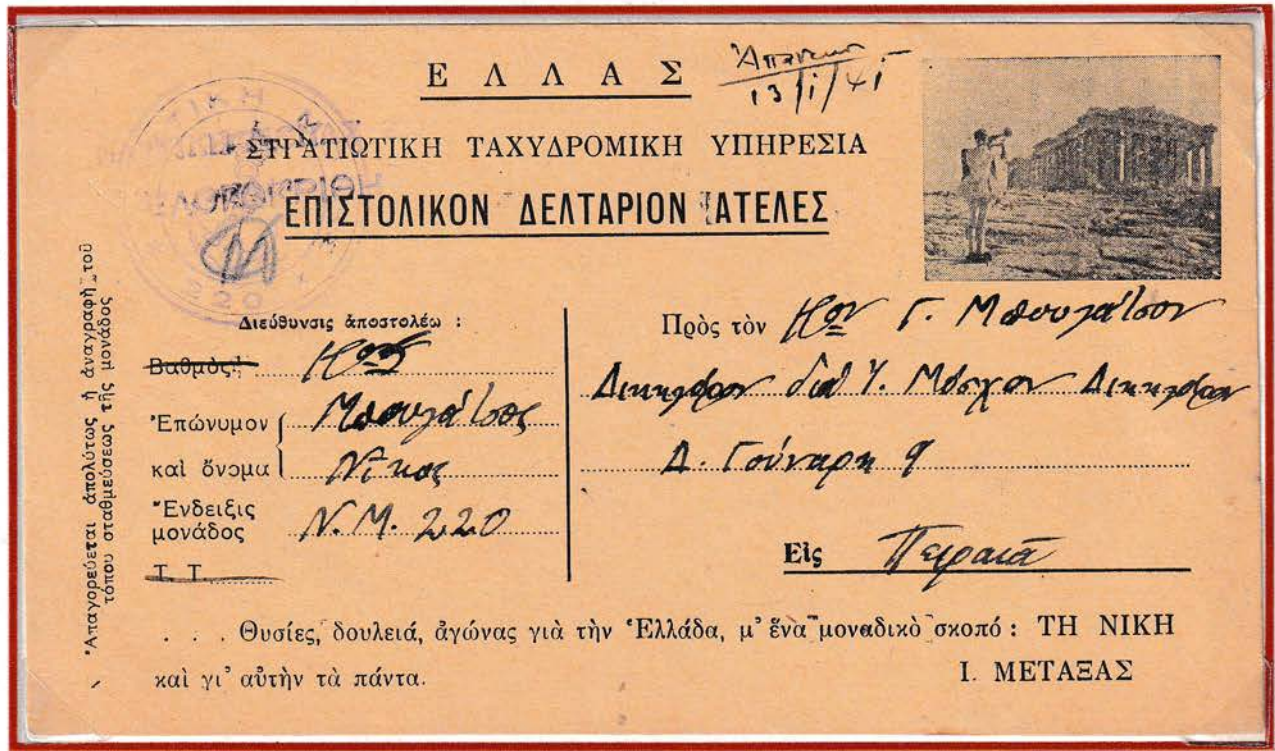 ΕΛΛΑΣ
13/1/41
ΣΤΡΑΤΙΩΤΙΚΗ ΤΑΧΥΔΡΟΜΙΚΗ ΥΠΗΡΕΣΙΑ
ΕΠΙΣΤΟΛΙΚΟΝ ΔΕΛΤΑΡΙΟΝ ΑΤΕΛΕΣ
220
Ἀπαγορεύεται ἀπολύτως ἡ ἀναγραφὴ τοῦ
τόπου σταθμεύσεως τῆς μονάδος
Διεύθυνσις ἀποστολέω :
Βαθμὸς
Ἐπώνυμον
καὶ ὄνομα Νῖκος
Ἔνδειξις
μονάδος Ν.Μ. 220
Τ. Τ.
Πρὸς τὸν Γ.
διὰ Υ. Μόσχον
Δ. Γούναρη 9
Εἰς Πειραιᾶ
. . . Θυσίες, δουλειά, ἀγώνας γιὰ τὴν Ἑλλάδα, μ' ἕνα μοναδικὸ σκοπό : ΤΗ ΝΙΚΗ
καὶ γι' αὐτὴν τὰ πάντα.
Ι. ΜΕΤΑΞΑΣ